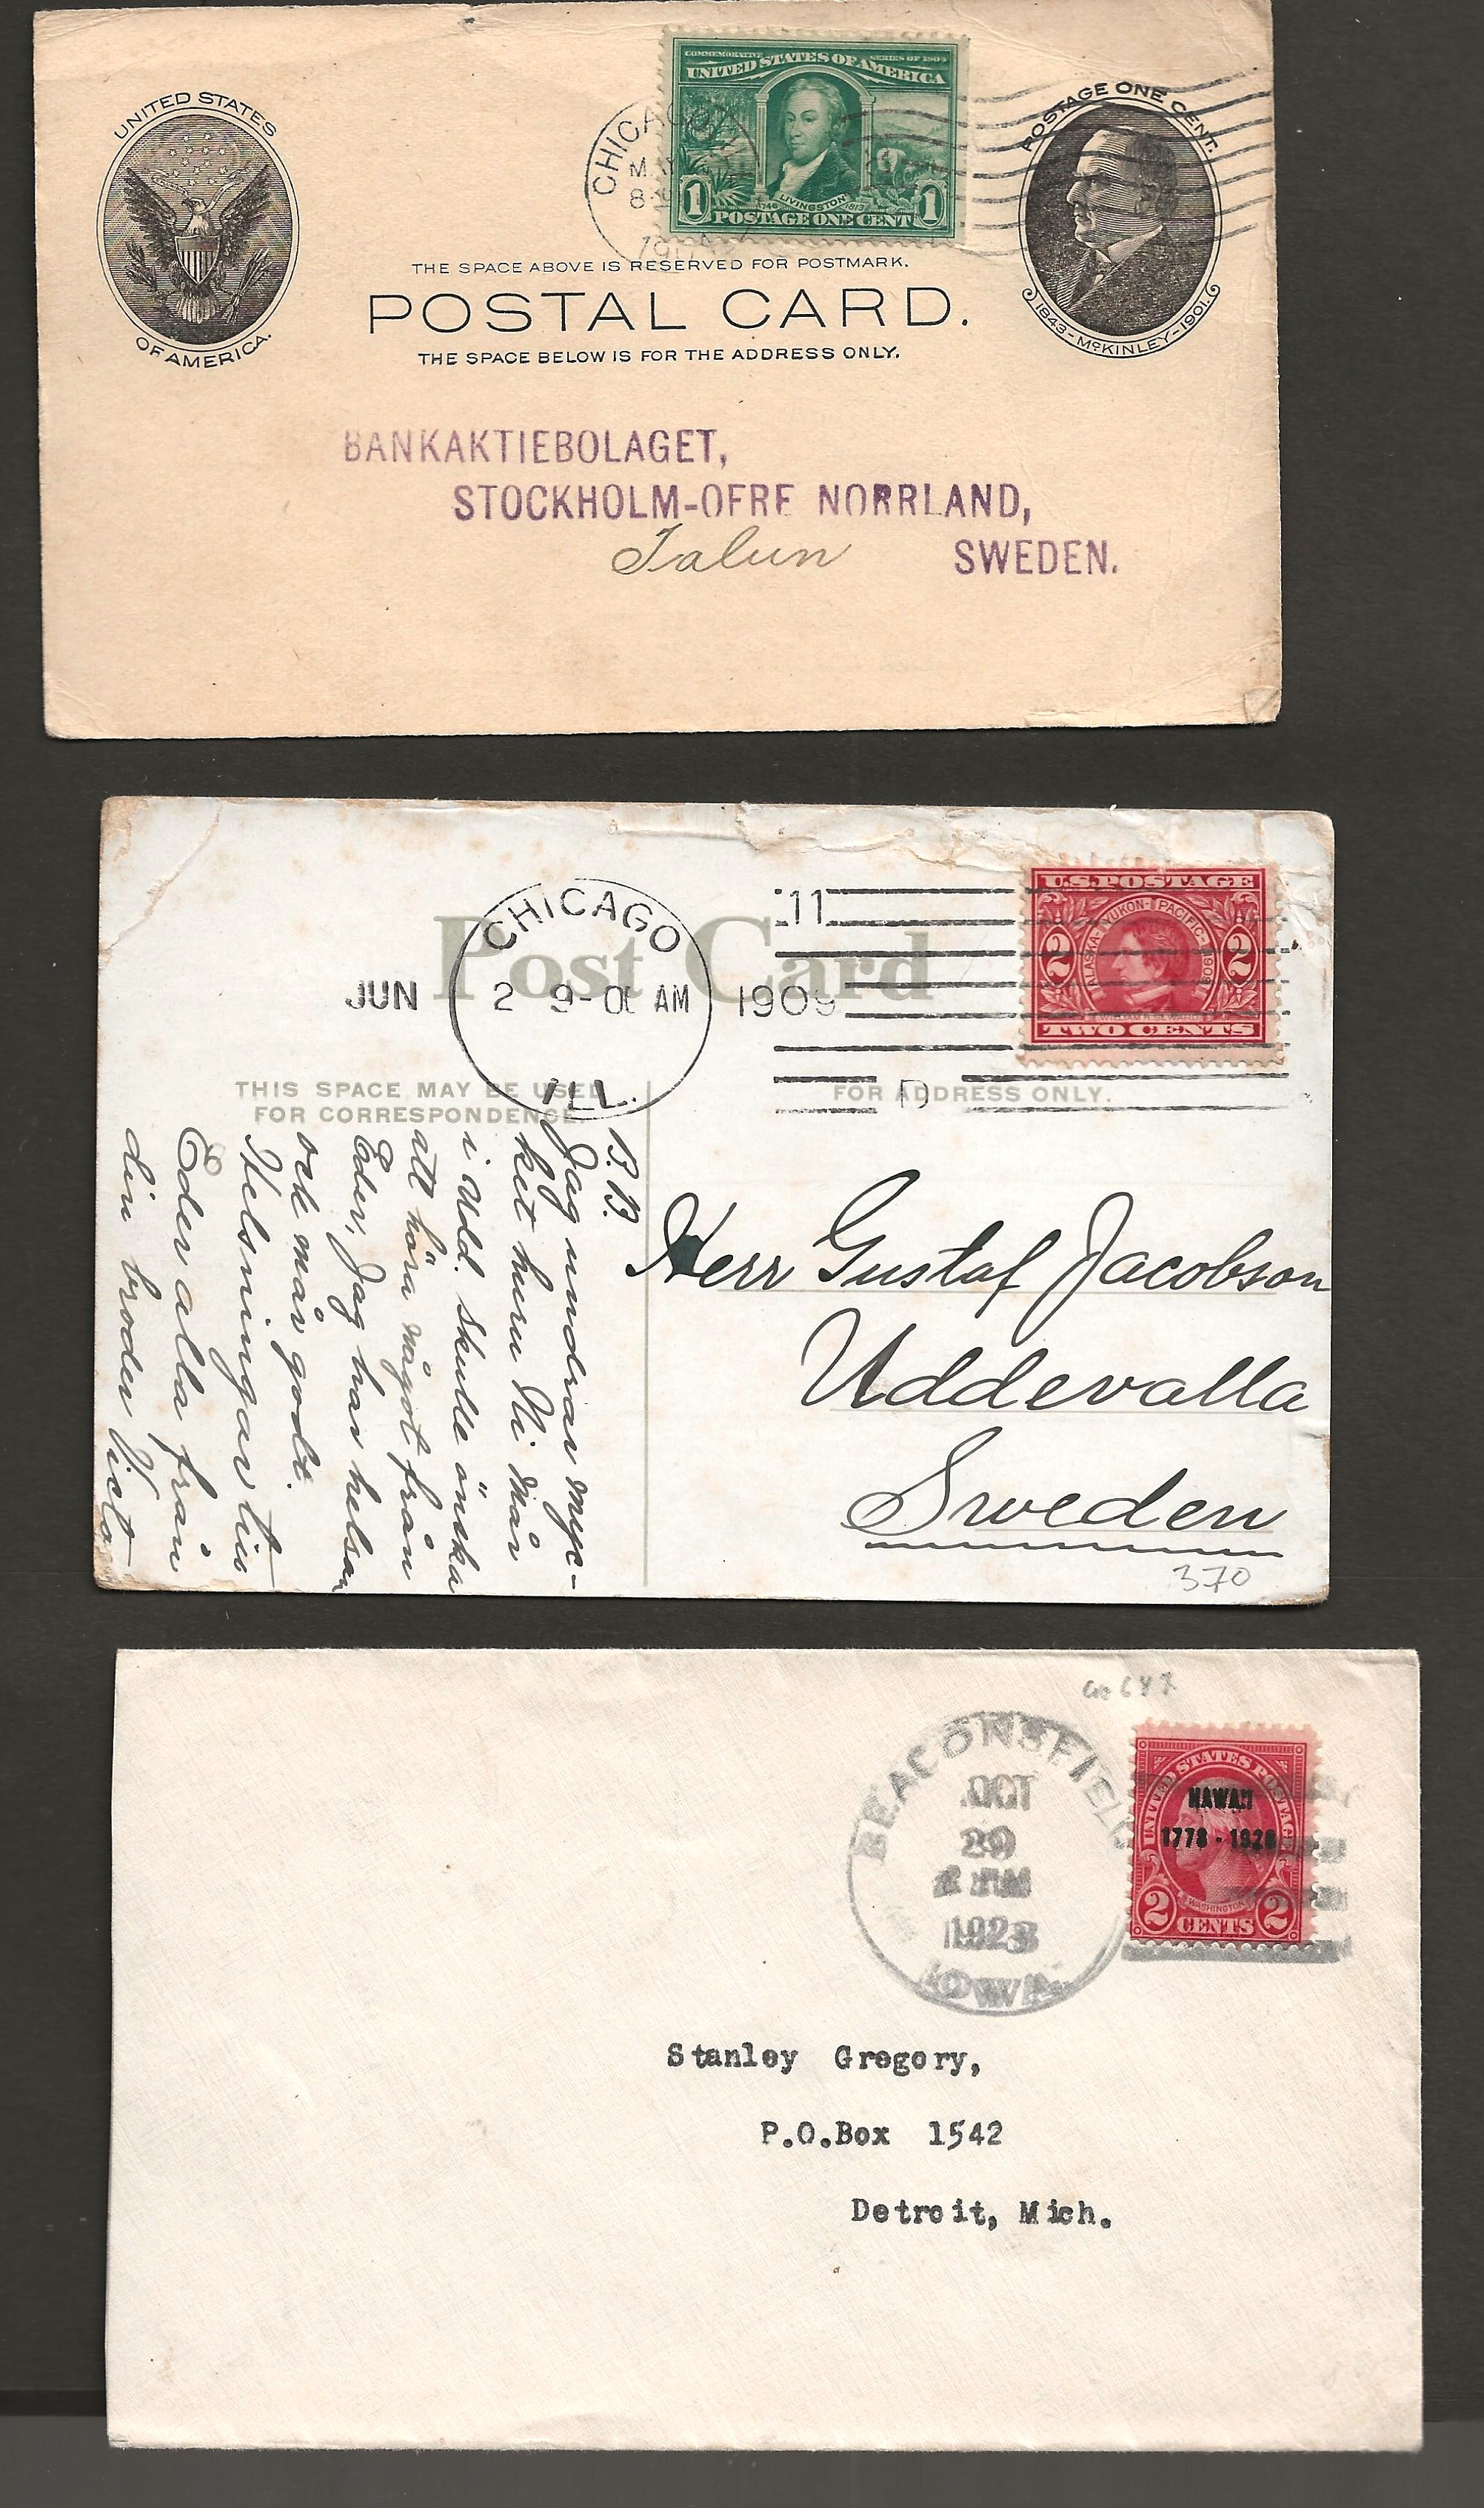 UNITED STATES
OF AMERICA.
COMMEMORATIVE SERIES OF 1904
UNITED STATES OF AMERICA
1 LIVINGSTON 1813 1
POSTAGE ONE CENT
CHICAGO
MAY
POSTAGE ONE CENT.
1843-McKINLEY-1901.
THE SPACE ABOVE IS RESERVED FOR POSTMARK.
POSTAL CARD.
THE SPACE BELOW IS FOR THE ADDRESS ONLY.
BANKAKTIEBOLAGET,
STOCKHOLM-OFRE NORRLAND,
Falun SWEDEN.
Post Card
CHICAGO
JUN 2 9-00 AM 1909
ILL.
11
D
U.S. POSTAGE
ALASKA-YUKON-PACIFIC-1909
2 2
TWO CENTS
THIS SPACE MAY BE USED
FOR CORRESPONDENCE.
FOR ADDRESS ONLY.
B.B.
Jag undrar myc-
ket huru Ni mår
i Udd. skulle önska
att höra något från
Eder, Jag har helsan
och mår godt.
Helsningar till
Eder alla från
din broder Victor
Herr Gustaf Jacobson
Uddevalla
Sweden
370
BEACONSFIELD
OCT
29
1928
IOWA
UNITED STATES POSTAGE
HAWAII
1778 - 1928
WASHINGTON
2 CENTS 2
Stanley Gregory,
P.O.Box 1542
Detroit, Mich.